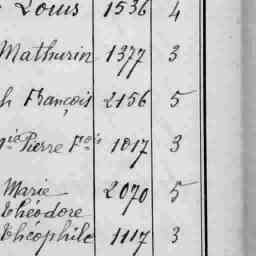 Louis 1536 4
Mathurin 1377 3
h François 2156 5
gie Pierre Fois 1017 3
Marie 2070 5
Théodore
Théophile 1117 3